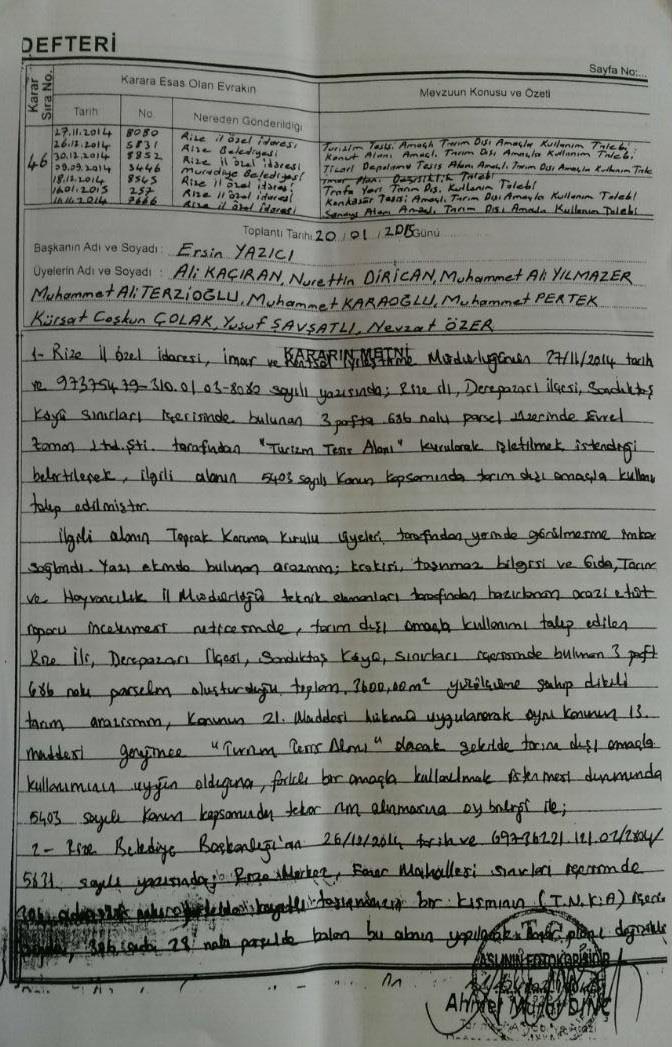 DEFTERİ
Sayfa No:...
Karar Sıra No.
Karara Esas Olan Evrakın
Mevzuun Konusu ve Özeti
Tarih
No.
Nereden Gönderildiği
46
27.11.2014 8080 Rize il özel idaresi Turizm Tesisi Amaçlı Tarım Dışı Amaçla Kullanım Talebi
26.12.2014 5831 Rize Belediyesi Konut Alanı Amaçlı Tarım Dışı Amaçla Kullanım Talebi
30.12.2014 8852 Rize il özel idaresi Ticari Depolama Tesis Alanı Amaçlı Tarım Dışı Amaçla Kullanım Tale
09.09.2014 3446 Muradiye Belediyesi İmar Planı Değişiklik Talebi
18.12.2014 8545 Rize il özel idaresi Trafo Yeri Tarım Dış. Kullanım Talebi
16.01.2015 257 Rize il özel idaresi Konkasör Tesisi Amaçlı Tarım Dışı Amaçla Kullanım Talebi
Rize il özel idaresi Sanayi Alanı Amaçlı Tarım Dışı Amaçla Kullanım Talebi
Toplantı Tarihi 20 / 01 / 2015 Günü
Başkanın Adı ve Soyadı : Ersin YAZICI
Üyelerin Adı ve Soyadı : Ali KAÇIRAN, Nurettin DİRİCAN, Muhammet Ali YILMAZER
Muhammet Ali TERZİOĞLU, Muhammet KARAOĞLU, Muhammet PERTEK
Kürşat Coşkun ÇOLAK, Yusuf ŞAVŞATLI, Nevzat ÖZER
KARARIN METNİ
1- Rize il özel idaresi, imar ve Müdürlüğünün 27/11/2014 tarih
ve 97375479-310.01.03-8080 sayılı yazısında; Rize ili, Derepazarı ilçesi, Sandıktaş
Köyü sınırları içerisinde bulunan 3 pafta 686 nolu parsel üzerinde
Ltd.Şti. tarafından "Turizm Tesis Alanı" kurularak işletilmek istendiği
belirtilerek, ilgili alanın 5403 sayılı Kanun kapsamında tarım dışı amaçla kullanı
talep edilmiştir.
İlgili alanın Toprak Koruma Kurulu üyeleri tarafından yerinde görülmesine imkan
sağlandı. Yazı ekinde bulunan arazinin; krokisi, taşınmaz bilgisi ve Gıda, Tarım
ve Hayvancılık İl Müdürlüğü teknik elemanları tarafından hazırlanan arazi etüt
raporu incelenmesi neticesinde, tarım dışı amaçla kullanımı talep edilen
Rize İli, Derepazarı İlçesi, Sandıktaş Köyü, sınırları içerisinde bulunan 3 paft
686 nolu parselin oluşturduğu toplam, 3600,00m² yüzölçüme sahip dikili
tarım arazisinin, Kanunun 21. Maddesi hükmü uygulanarak aynı kanunun 13.
maddesi gereğince "Turizm Tesis Alanı" olacak şekilde tarım dışı amaçla
kullanımının uygun olduğuna, farklı bir amaçla kullanılmak istenmesi durumunda
5403 sayılı Kanun kapsamında tekrar izin alınmasına oy birliği ile;
2- Rize Belediye Başkanlığı'nın 26/12/2014 tarih ve
5831 sayılı yazısında; Rize Merkez, Mahallesi sınırları içerisinde
bir kısmının (T.N.K:A)
28 nolu parselde kalan bu alanın yapılarak imar planı değişikli
ASLININ FOTOKOPİSİDİR
Ahmet DİNÇ